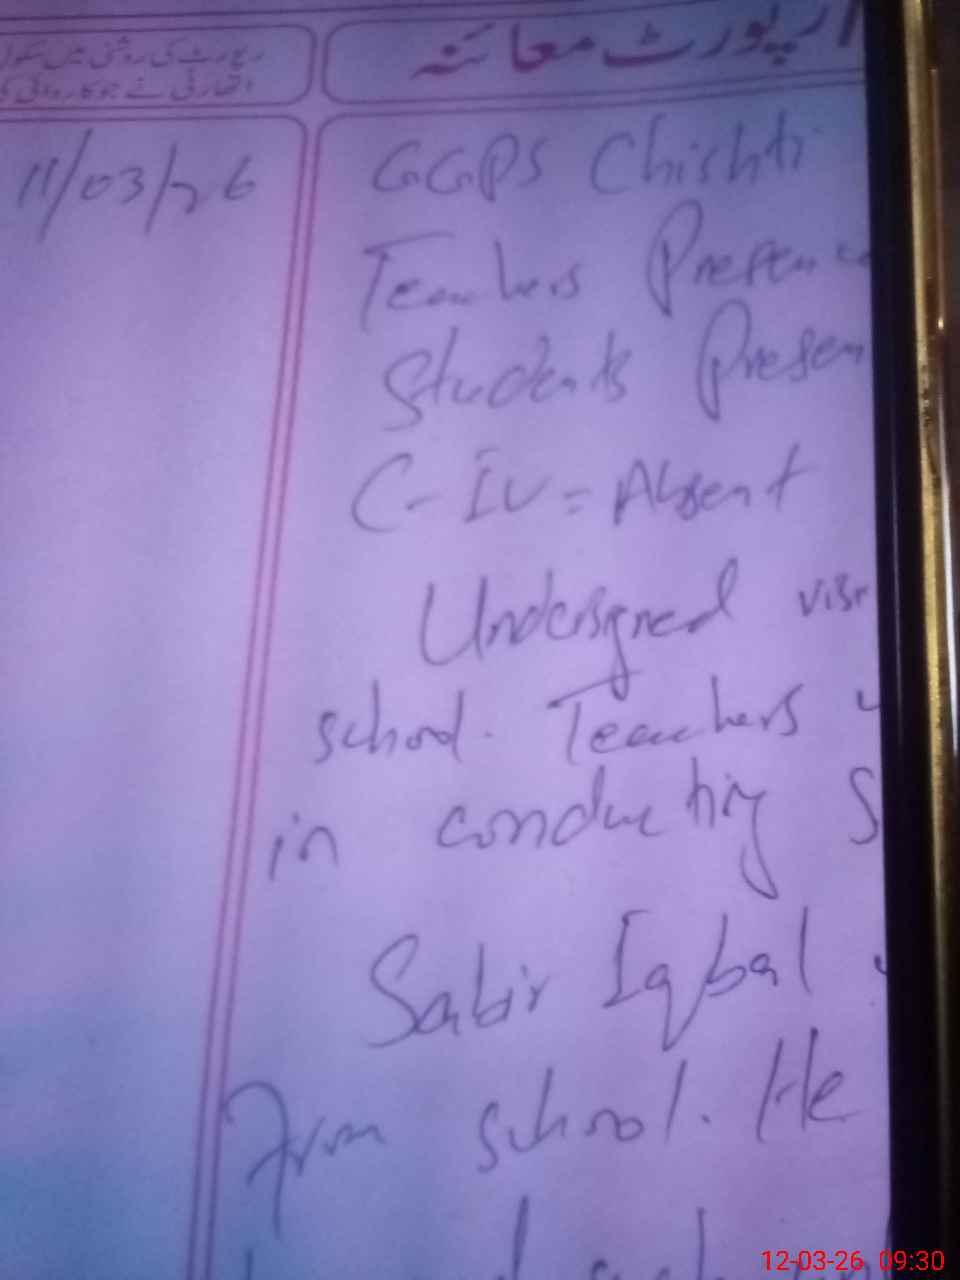 رپورٹ معائنہ
رپورٹ کی روشنی میں سکول
اتھارٹی نے جو کاروائی کی
11/03/26
GGPS Chishti
Teachers Presen
Students Presen
C-IV = Absent
Undersigned visi
school. Teachers
in conducting S
Sabir Iqbal
From school. He
12-03-26 09:30